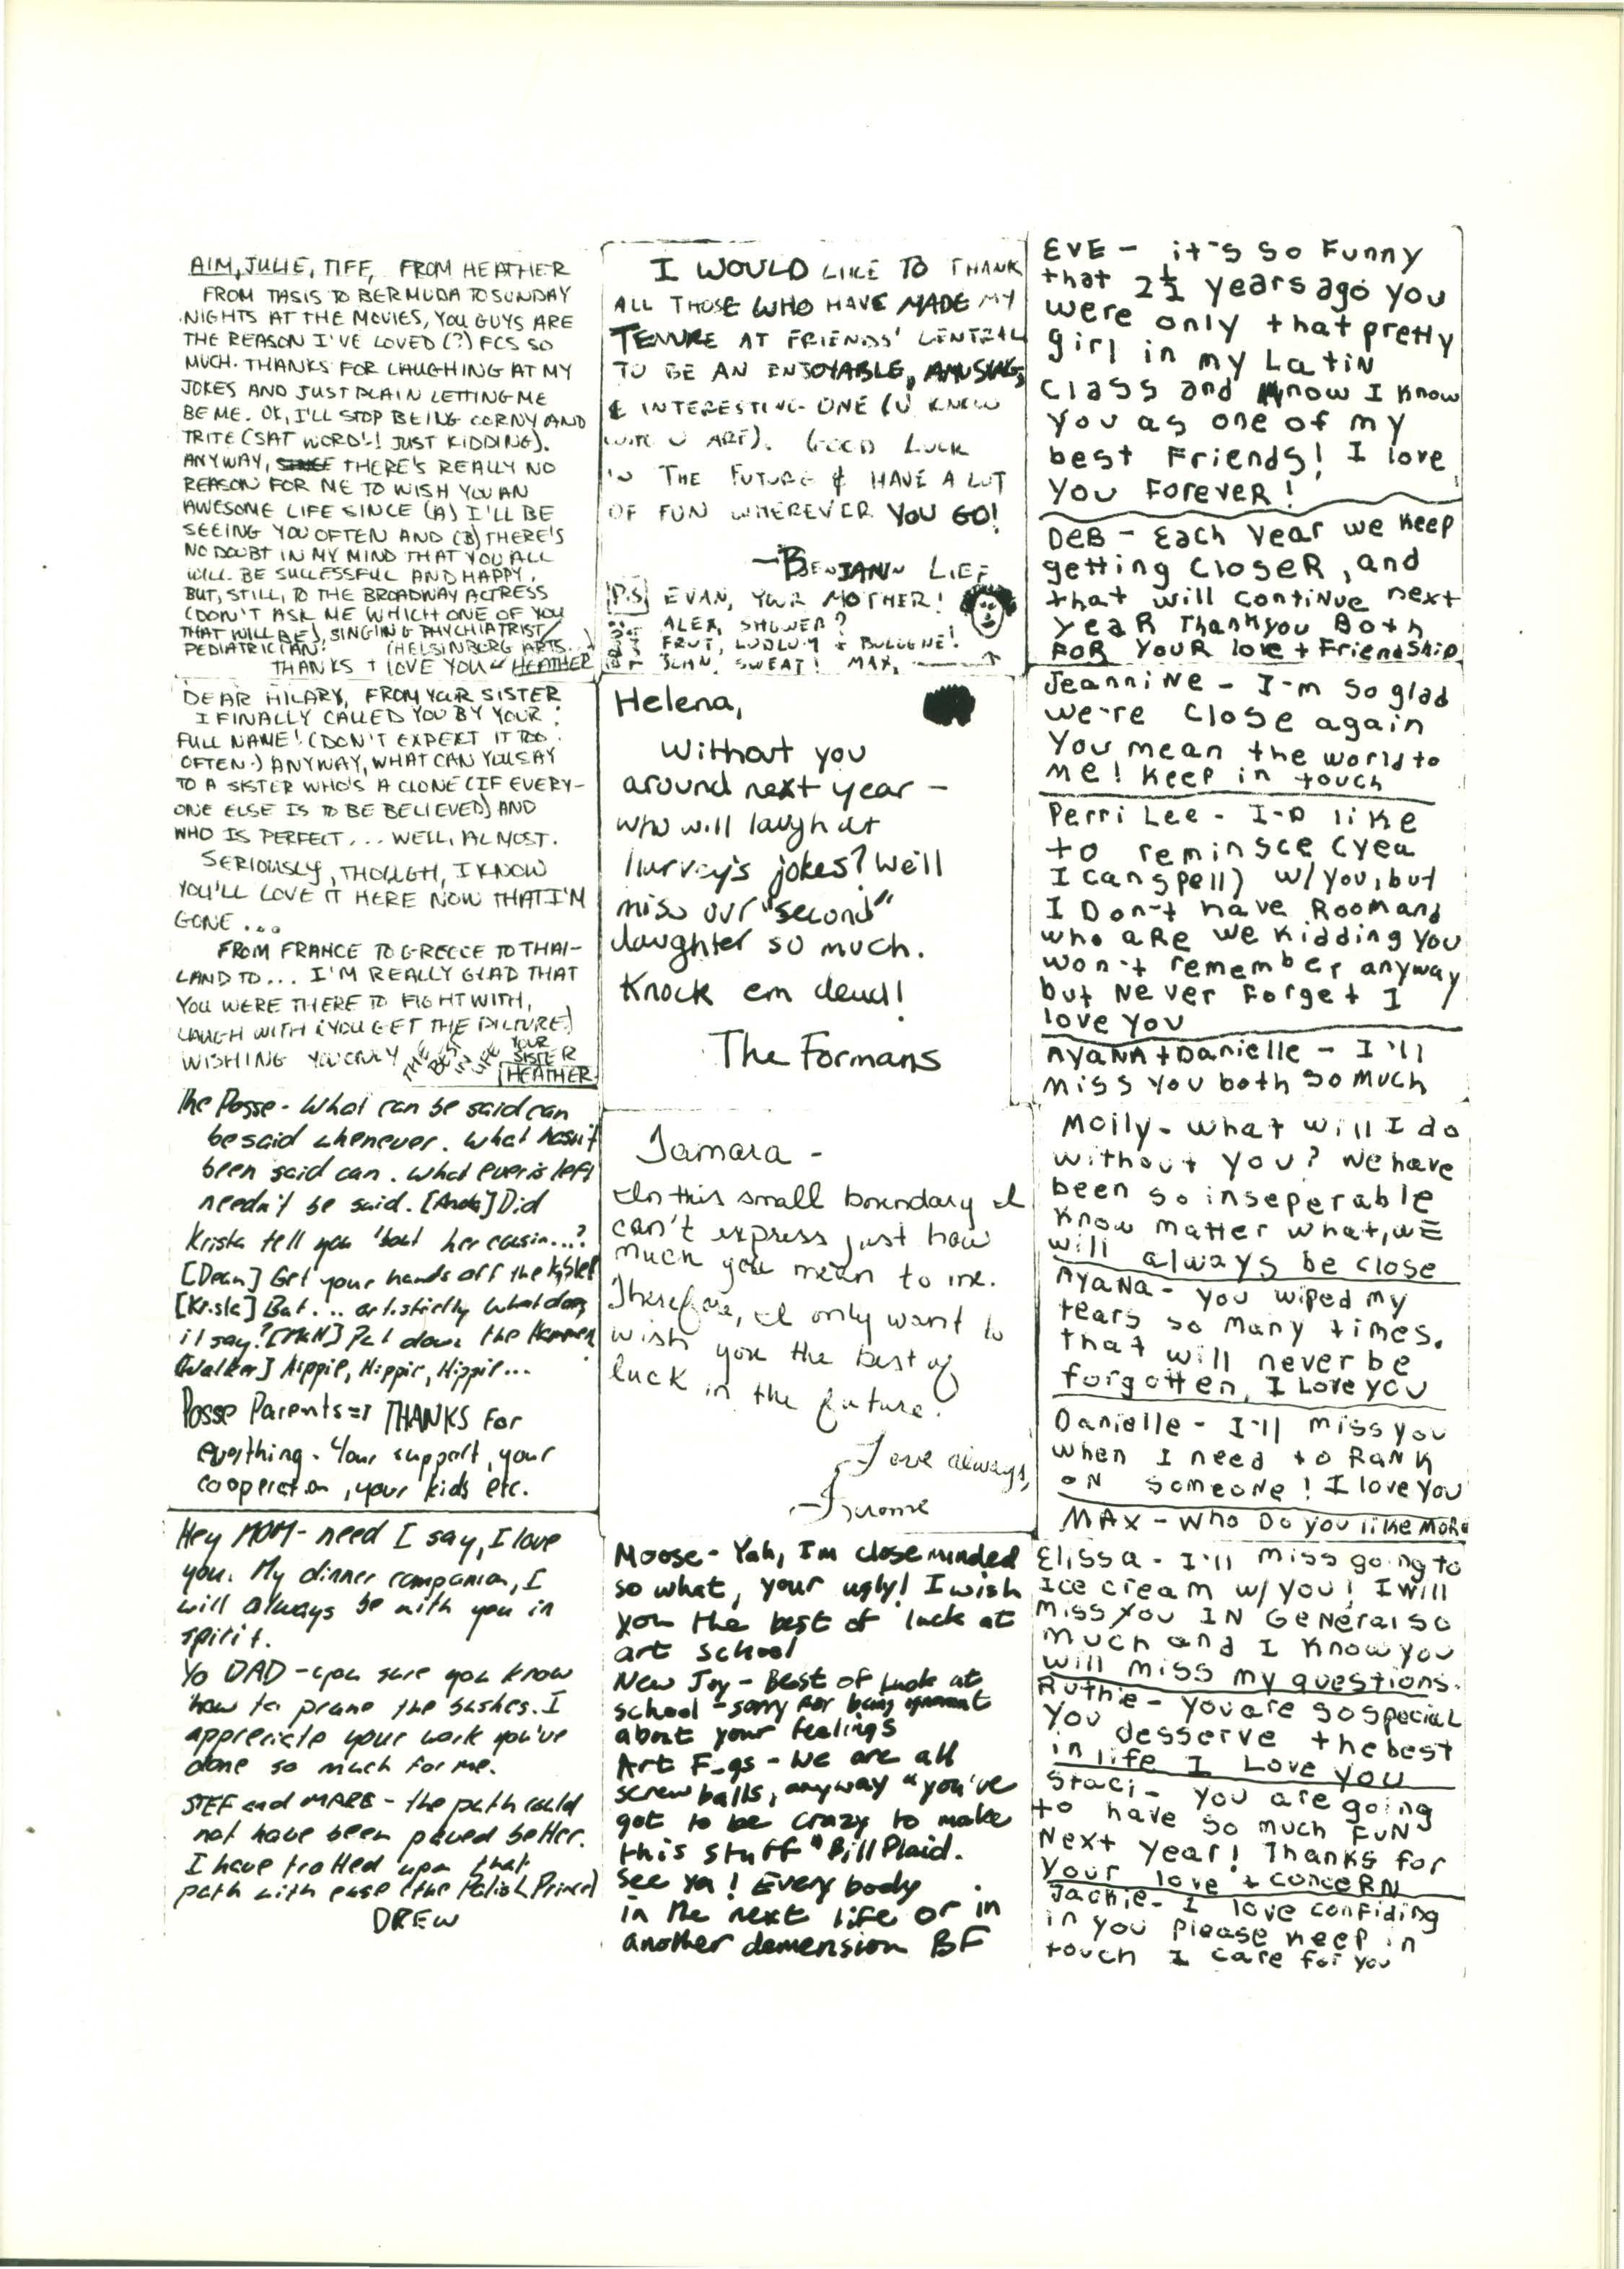 AIM, JULIE, TIFF, FROM HEATHER
FROM TASIS TO BERMUDA TO SUNDAY
NIGHTS AT THE MOVIES, YOU GUYS ARE
THE REASON I'VE LOVED (?) FCS SO
MUCH. THANKS FOR LAUGHING AT MY
JOKES AND JUST PLAIN LETTING ME
BE ME. OK, I'LL STOP BEING CORNY AND
TRITE (SAT WORD!! JUST KIDDING).
ANYWAY, THERE'S REALLY NO
REASON FOR ME TO WISH YOU AN
AWESOME LIFE SINCE (A) I'LL BE
SEEING YOU OFTEN AND (B) THERE'S
NO DOUBT IN MY MIND THAT YOU ALL
WILL BE SUCCESSFUL AND HAPPY.
BUT, STILL, TO THE BROADWAY ACTRESS
(DON'T ASK ME WHICH ONE OF YOU
THAT WILL BE), SINGING PHYCHIATRIST/
PEDIATRICIAN! (HELSINBORG ARTS...)
THANKS + LOVE YOU HEATHER
DEAR HILARY, FROM YOUR SISTER
I FINALLY CALLED YOU BY YOUR
FULL NAME! (DON'T EXPECT IT TOO
OFTEN.) ANYWAY, WHAT CAN YOU SAY
TO A SISTER WHO'S A CLONE (IF EVERY-
ONE ELSE IS TO BE BELIEVED) AND
WHO IS PERFECT... WELL, ALMOST.
SERIOUSLY, THOUGH, I KNOW
YOU'LL LOVE IT HERE NOW THAT I'M
GONE...
FROM FRANCE TO GREECE TO THAI-
LAND TO... I'M REALLY GLAD THAT
YOU WERE THERE TO FIGHT WITH,
LAUGH WITH (YOU GET THE PICTURE.)
WISHING YOU ONLY THE BEST IN LIFE YOUR
SISTER
HEATHER
The Posse - What can be said can
be said whenever. What hasn't
been said can. What ever is left
needn't be said. [Andy] Did
Krista tell you 'bout her cousin...?
[Dean] Get your hands off the
[Krista] But... artistically what does
it say? Put down the Hammer
[Walker] Hippie, Hippie, Hippie...
Posse Parents => THANKS For
everything - Your support, your
cooperation, your kids etc.
Hey MOM - need I say, I love
you. My dinner companion, I
will always be with you in
spirit.
Yo DAD - you sure you know
how to prune the bushes. I
appreciate your work you've
done so much for me.
STEF and MARE - the path could
not have been paved better.
I have trotted upon that
path with ease (the Polish Prince)
DREW
I WOULD LIKE TO THANK
ALL THOSE WHO HAVE MADE MY
TENURE AT FRIENDS' CENTRAL
TO BE AN ENJOYABLE, AMUSING,
& INTERESTING ONE (U KNOW
WHO U ARE). GOOD LUCK
IN THE FUTURE & HAVE A LOT
OF FUN WHEREVER YOU GO!
- BENJAMIN LIEF
P.S. EVAN, YOUR MOTHER!
ALEX, SHOWER?
FRUT, LUDLUM + BOLOGNE!
SEAN, SWEAT! MAX,
Helena,
Without you
around next year -
who will laugh at
Harvey's jokes? We'll
miss our "second"
daughter so much.
Knock em dead!
The Formans
Tamara -
In this small boundary I
can't express just how
much you mean to me.
Therefore, I only want to
wish you the best of
luck in the future.
Love always,
Jerome
Moose - Yah, I'm close minded
so what, your ugly! I wish
you the best of luck at
art school
New Joy - Best of luck at
school - sorry for being ignorant
about your feelings
Art F-gs - We are all
screwballs, anyway "you've
got to be crazy to make
this stuff" Bill Plaid.
See ya! Every body
in the next life or in
another demension BF
EVE - it's so Funny
that 2½ years ago you
were only that pretty
girl in my Latin
class and know I know
you as one of my
best Friends! I love
you Forever!
DEB - Each Year we keep
getting CloseR, and
that will continue next
yeaR Thankyou Both
FOR YouR love + Friendship
JeanniNe - I'm so glad
we're close again
You mean the world to
me! keep in touch
Perri Lee - I'D like
to reminsce (yea
I can spell) w/you, but
I Don't have Room and
who aRe we kidding you
won't remember anyway
but Never Forget I
love you
AYaNA + Danielle - I'll
miss you both so much
Molly - what will I do
without you? We have
been so inseperable
know matter what, wE
will always be close
AYaNa - you wiped my
tears so many times.
that will never be
forgotten, I Love you
Danielle - I'll miss you
when I need to RaNk
oN someoNe! I love you
MAX - Who Do you like MoRe
Elissa - I'll miss going to
Ice cream w/you! I will
miss you IN General so
much and I know you
will miss my questions.
Ruthie - You are so special
You desserve the best
in life I Love you
Staci - You are going
to have so much FuN
Next year! Thanks for
your love + conceRN
Jackie - I love confiding
in you please keep in
touch I care for you